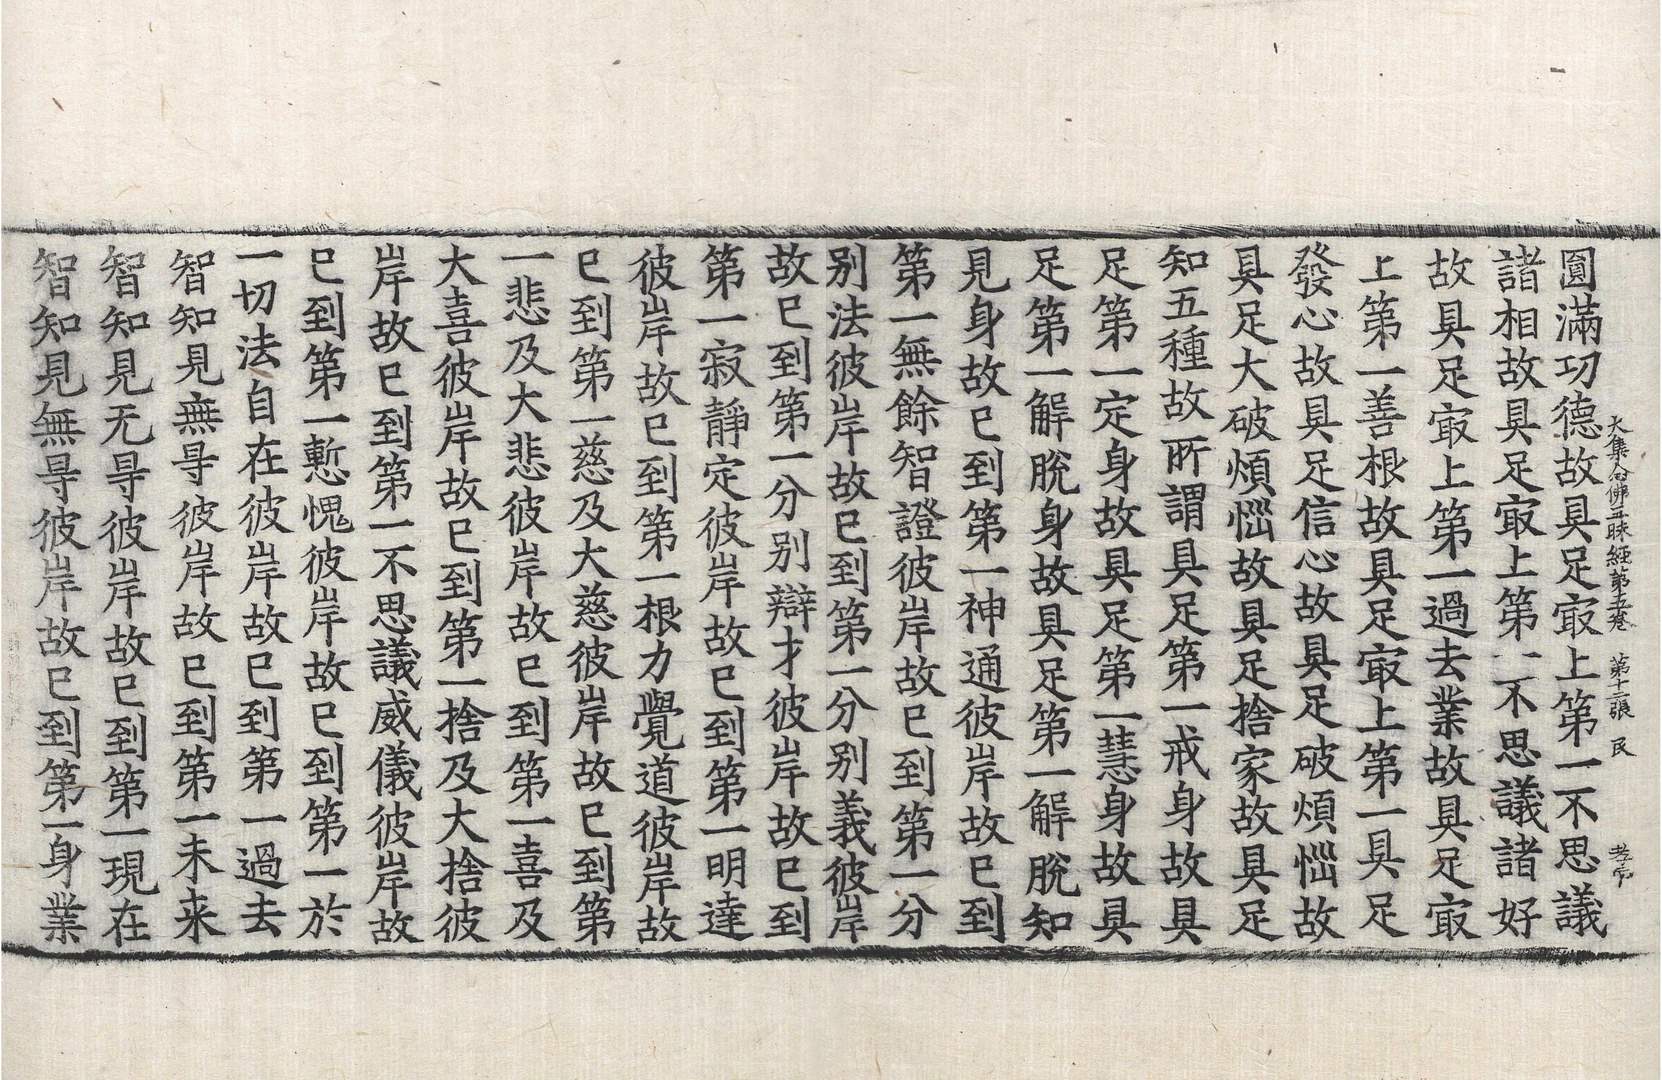 大集念佛三昧經第五卷 第十三張 民
圓滿功德故具足㝡上第一不思議
諸相故具足㝡上第一不思議諸好
故具足㝡上第一過去業故具足㝡
上第一善根故具足㝡上第一具足
發心故具足信心故具足破煩惱故
具足大破煩惱故具足捨家故具足
知五種故所謂具足第一戒身故具
足第一定身故具足第一慧身故具
足第一解脫身故具足第一解脫知
見身故已到第一神通彼岸故已到
第一無餘智證彼岸故已到第一分
别法彼岸故已到第一分别義彼岸
故已到第一分别辯才彼岸故已到
第一寂靜定彼岸故已到第一明達
彼岸故已到第一根力覺道彼岸故
已到第一慈及大慈彼岸故已到第
一悲及大悲彼岸故已到第一喜及
大喜彼岸故已到第一捨及大捨彼
岸故已到第一不思議威儀彼岸故
已到第一慙愧彼岸故已到第一於
一切法自在彼岸故已到第一過去
智知見無㝵彼岸故已到第一未来
智知見无㝵彼岸故已到第一現在
智知見無㝵彼岸故已到第一身業